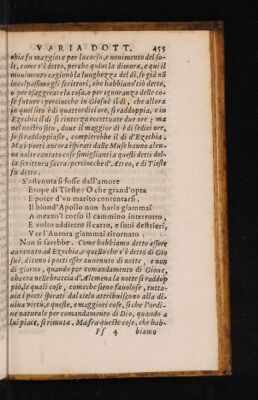 VARIA DOTT. 455
chia fu maggiore per lo corso, e mouimento del so-
le, come s'è detto, perche quini la dimora, e qui il
mouimento cagionò la lunghezza del dì, se già nō
incolpassimo gli scrittori, che habbiano ciò detto,
o per isaggerare la cosa, o per ignoranza delle co-
se future: perciocche in Giosuè il dì, che allora
in quel sito è di quattordici ore, si raddoppia, e in
Ezechia il dì si rintera eccettuate due ore; ma
nel nostro sito, doue il maggior dì è di sedici ore,
se si raddoppiasse, compierebbe il dì d'Ezechia.
Ma i poeti ancora ispirati dalle Muse hanno alcu-
ne volte cantato cose simiglianti a questi detti del-
la scrittura sacra: perciocche d'Atreo, e di Tieste
fu detto.
S'astenuta si fosse dall'amore
Erope di Tieste: O che grand'opra
E poter d'vn marito contentarsi,
Il biond'Apollo non haria giammai
A mezzo'l corso il cammino interrotto,
E volto addietro il carro, e suoi destrieri,
Ver l'Aurora giammai ritornato;
Non si sarebbe. Come habbiamo detto essere
auuenuto ad Ezechia, e quello che s'è detto di Gio
suè, dicono i poeti esser auuenuto di notte, e non
di giorno, quando per comandamento di Gioue,
ch'era nelle braccia d'Alcmena la notte si raddop
piò, le quali cose, comeche sieno fauolose, tutta-
uia i poeti ispirati dal cielo attribuiscono alla di-
uina virtù, e queste, e maggiori cose, sì che l'ordi-
ne naturale per comandamento di Dio, quando a
lui piace, si rimuta. Ma fra queste cose, che hab-
Ff 4 biamo